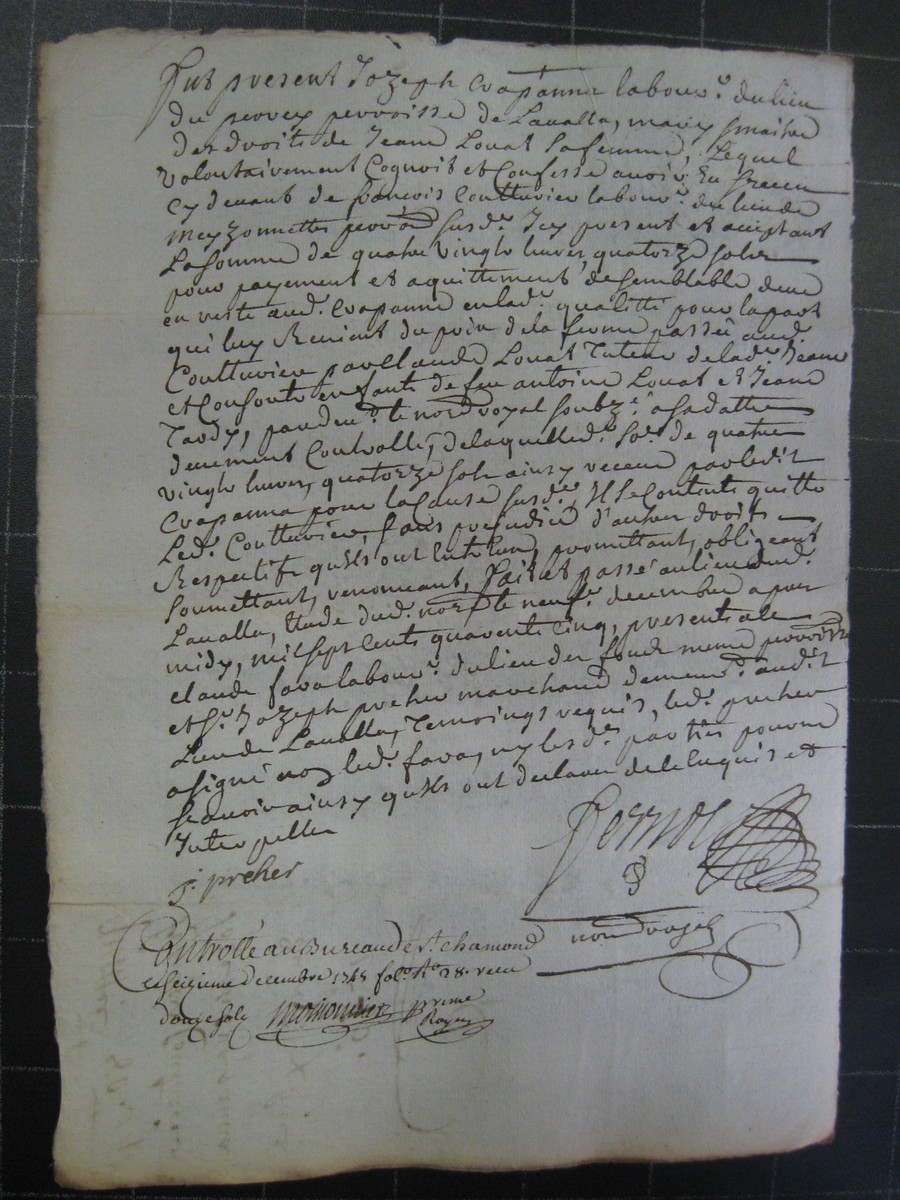 fut present Jozeph Crapanne labour.r du lieu
du perrey perroisse de Lavalla, mary & maitre
des droits de Jeanne Louat sa femme, Lequel
volontairement Cognoit et Confesse avoir Eu & receu
cy devant de francois Coutturier labour.r du lieu de
meyzonnettes perr.se susd.e Icy present et acceptant
La somme de quatre vingts livres quatorze sols
pour payement et aquittement de semblable deue
en reste aud. Crapanne en lad.e qualitté pour la part
qui luy Revient du prix de la ferme passée aud.
Coutturier par Claude Louat Tuteur de lad.e Jeanne
et Consorts enfants de feu antoine Louat et Jeanne
Tardy, pardev.t le no.re royal soubz.é a sa datte
deuement Controllé, de laquelle d. so.e de quatre
vingts livres, quatorze sols ainsy receue par ledit
Crapanne pour la Cause susd.e, Il se Contente quitte
Led. Coutturier, sans prejudice d'autres droits
Respectifs qu'ils ont Entr'eux, promettant, obligeant
soumettant, renonceant, fait et passé au lieu dud.
Lavalla, Etude dud. no.re le neuf.e decembre apres
midy, mil sept cents quarente cinq, presents a ce
claude fara labour.r du lieu de fonds meme perroisse
et S.r Jozeph preher marchand demeur.t audit
Lieu de Lavalla, Temoings requis, led. preher
a signé non led. fara, ny lesd. parties pour ne
scavoir ainsy qu'ils ont declaré de ce Enquis et
Interpellés
j. preher
no.re royal
Controllé au Bureau de St chamond
ce seizieme decembre 1745 fol.o R.o 28. receu
douze sols